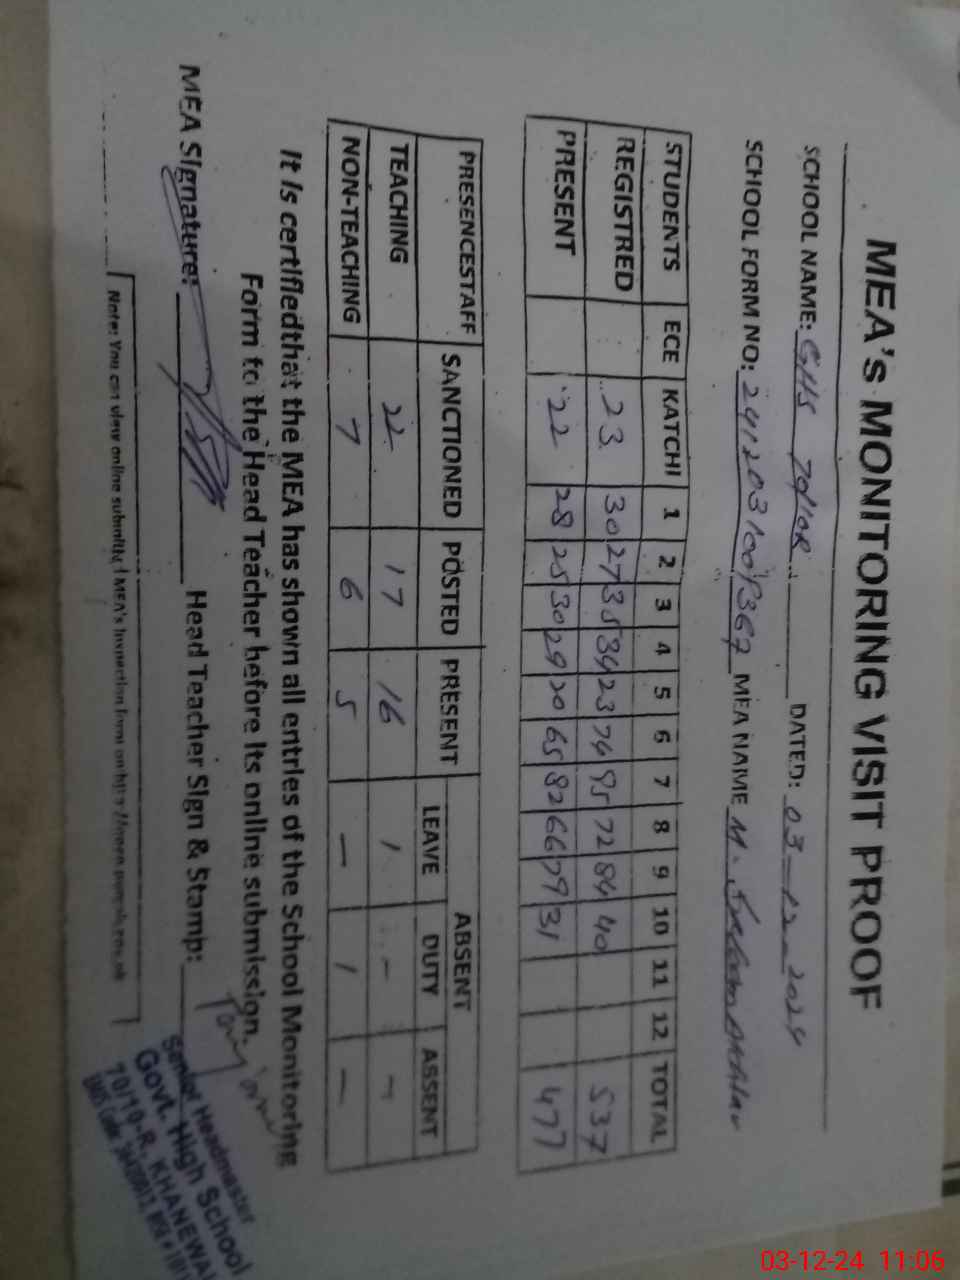 MEA's MONITORING VISIT PROOF
SCHOOL NAME: GHS 70/10R DATED: 03-12-2024
SCHOOL FORM NO: MEA NAME M.
STUDENTS ECE KATCHI 1 2 3 4 5 6 7 8 9 10 11 12 TOTAL
REGISTRED 23 30 27 35 34 23 74 95 72 84 40 537
PRESENT 22 28 25 30 29 20 65 82 66 79 31 477
PRESENCESTAFF SANCTIONED POSTED PRESENT ABSENT
LEAVE DUTY ASSENT
TEACHING 22 17 16 1 - -
NON-TEACHING 7 6 5 - 1 -
It is certifiedthat the MEA has shown all entries of the School Monitoring
Form to the Head Teacher before its online submission.
MEA Signature: Head Teacher Sign & Stamp:
Senior Headmaster
Govt. High School
70/10-R, KHANEWAL
EMIS Code:
Note: You can view online submitted MEA's Inspection form on
03-12-24 11:06